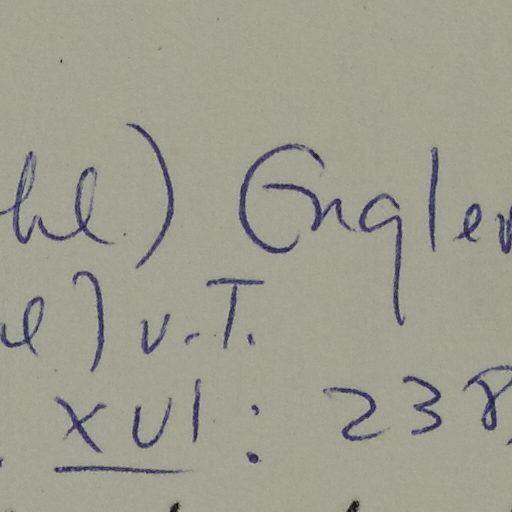 hl) Engler
l) v.T.
. XVI: 238